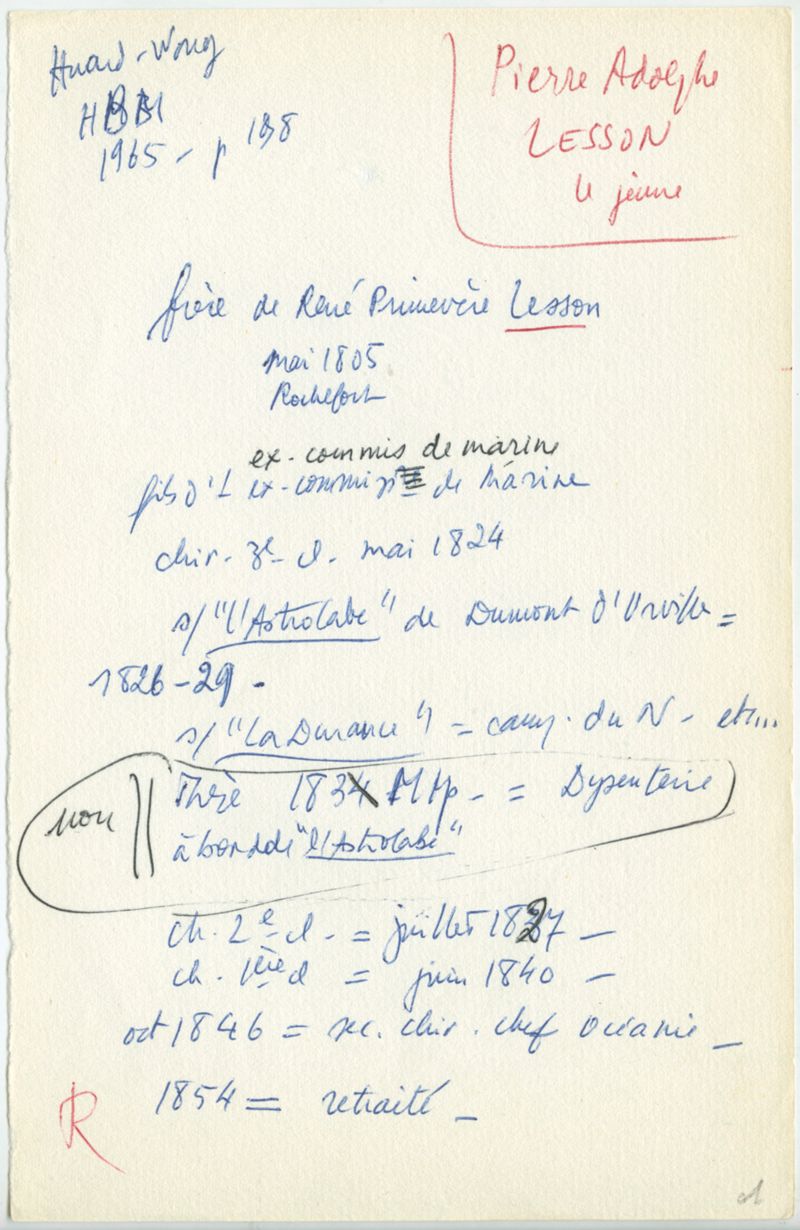 Huard-Wong
HBM
1965 - p 198
Pierre Adolphe
LESSON
le jeune
frère de René Primevère Lesson
mai 1805
Rochefort
ex-commis de marine
fils d'1 ex-commis de Marine
chir. 3e cl. mai 1824
s/ "l'Astrolabe" de Dumont d'Urville =
1826-29 -
s/ "La Durance" = camp. du N - etc...
non
Thèse 1834 Mtp - = Dysenterie
à bord de "l'Astrolabe"
ch. 2e cl - = juillet 1827 -
ch. 1ère cl = juin 1840 -
oct 1846 = sec. chir. chef Océanie -
1854 = retraité -
R